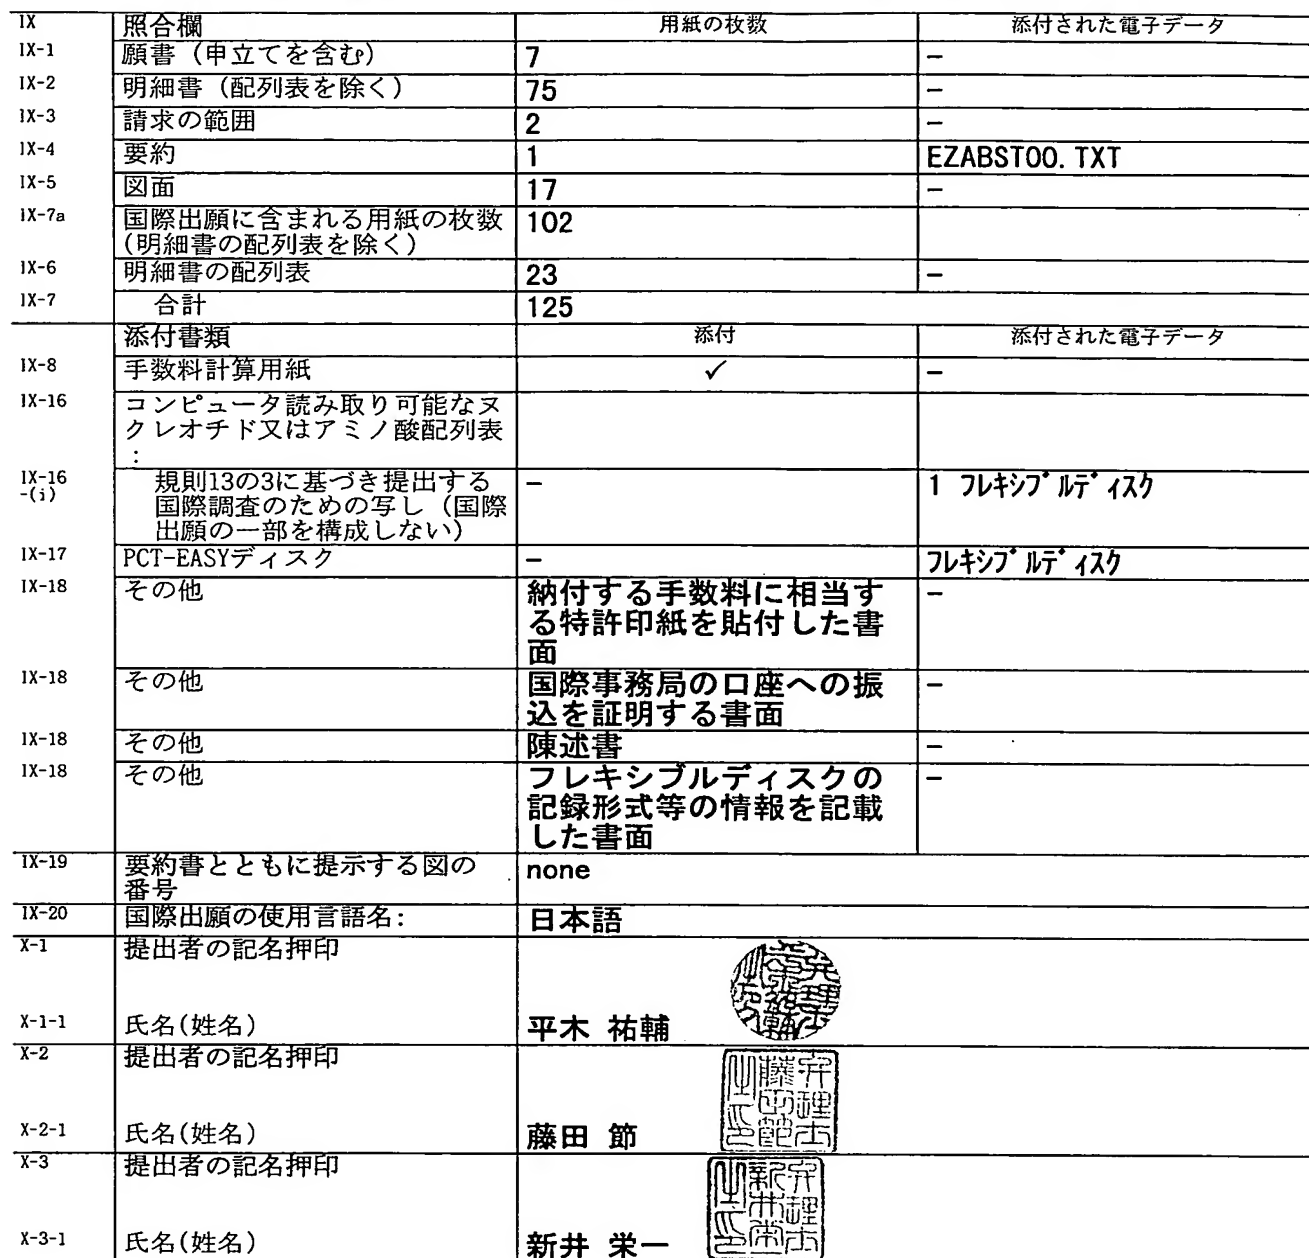 IX 照合欄 用紙の枚数 添付された電子データ
IX-1 願書（申立てを含む） 7 －
IX-2 明細書（配列表を除く） 75 －
IX-3 請求の範囲 2 －
IX-4 要約 1 EZABST00.TXT
IX-5 図面 17 －
IX-7a 国際出願に含まれる用紙の枚数 102
(明細書の配列表を除く）
IX-6 明細書の配列表 23 －
IX-7 合計 125
添付書類 添付 添付された電子データ
IX-8 手数料計算用紙 ✓ －
IX-16 コンピュータ読み取り可能なヌ
クレオチド又はアミノ酸配列表
:
IX-16 規則13の3に基づき提出する － 1 フレキシブルディスク
-(i) 国際調査のための写し（国際
出願の一部を構成しない）
IX-17 PCT-EASYディスク － フレキシブルディスク
IX-18 その他 納付する手数料に相当す －
る特許印紙を貼付した書
面
IX-18 その他 国際事務局の口座への振 －
込を証明する書面
IX-18 その他 陳述書 －
IX-18 その他 フレキシブルディスクの －
記録形式等の情報を記載
した書面
IX-19 要約書とともに提示する図の none
番号
IX-20 国際出願の使用言語名: 日本語
X-1 提出者の記名押印
X-1-1 氏名(姓名) 平木 祐輔
X-2 提出者の記名押印
X-2-1 氏名(姓名) 藤田 節
弁理士
藤田節
之印
X-3 提出者の記名押印
X-3-1 氏名(姓名) 新井 栄一